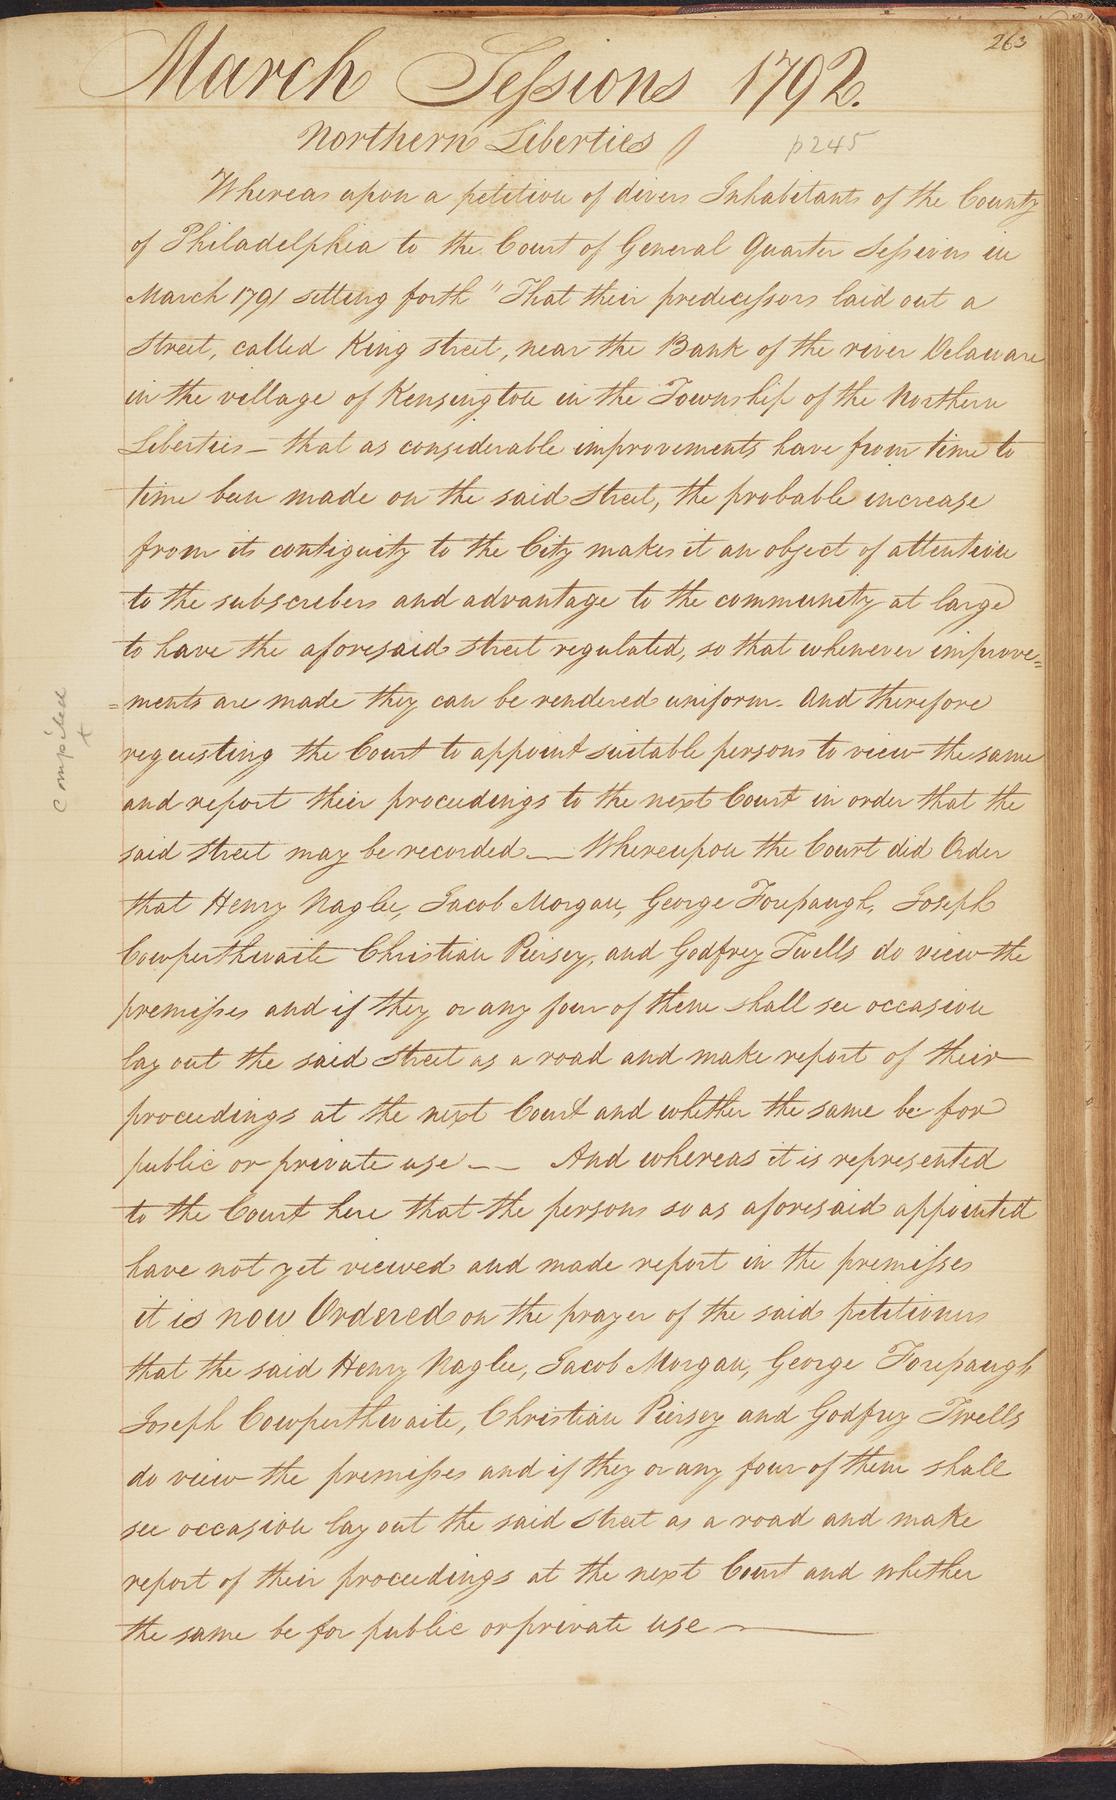 263
March Sessions 1792.
Northern Liberties
p 245
Whereas upon a petition of divers Inhabitants of the County
of Philadelphia to the Court of General Quarter Sessions in
March 1791 setting forth "That their predecessors laid out a
Street, called King street, near the Bank of the river Delaware
in the village of Kensington in the Township of the Northern
Liberties — that as considerable improvements have from time to
time been made on the said Street, the probable increase
from its contiguity to the City makes it an object of attention
to the subscribers and advantage to the community at large
to have the aforesaid street regulated, so that whenever improve=
=ments are made they can be rendered uniform. And therefore
requesting the Court to appoint suitable persons to view the same
and report their proceedings to the next Court in order that the
said street may be recorded — Whereupon the Court did Order
that Henry Naglee, Jacob Morgan, George Forepaugh, Joseph
Cowperthwaite Christian Piersey, and Godfrey Twells do view the
premisses and if they or any four of them shall see occasion
lay out the said street as a road and make report of their
proceedings at the next Court and whether the same be for
public or private use — — And whereas it is represented
to the Court here that the persons so as aforesaid appointed
have not yet viewed and made report in the premisses
it is now Ordered on the prayer of the said petitioners
that the said Henry Naglee, Jacob Morgan, George Forepaugh
Joseph Cowperthwaite, Christian Piersey and Godfrey Twells
do view the premisses and if they or any four of them shall
see occasion lay out the said street as a road and make
report of their proceedings at the next Court and whether
the same be for public or private use —
Compiled
x